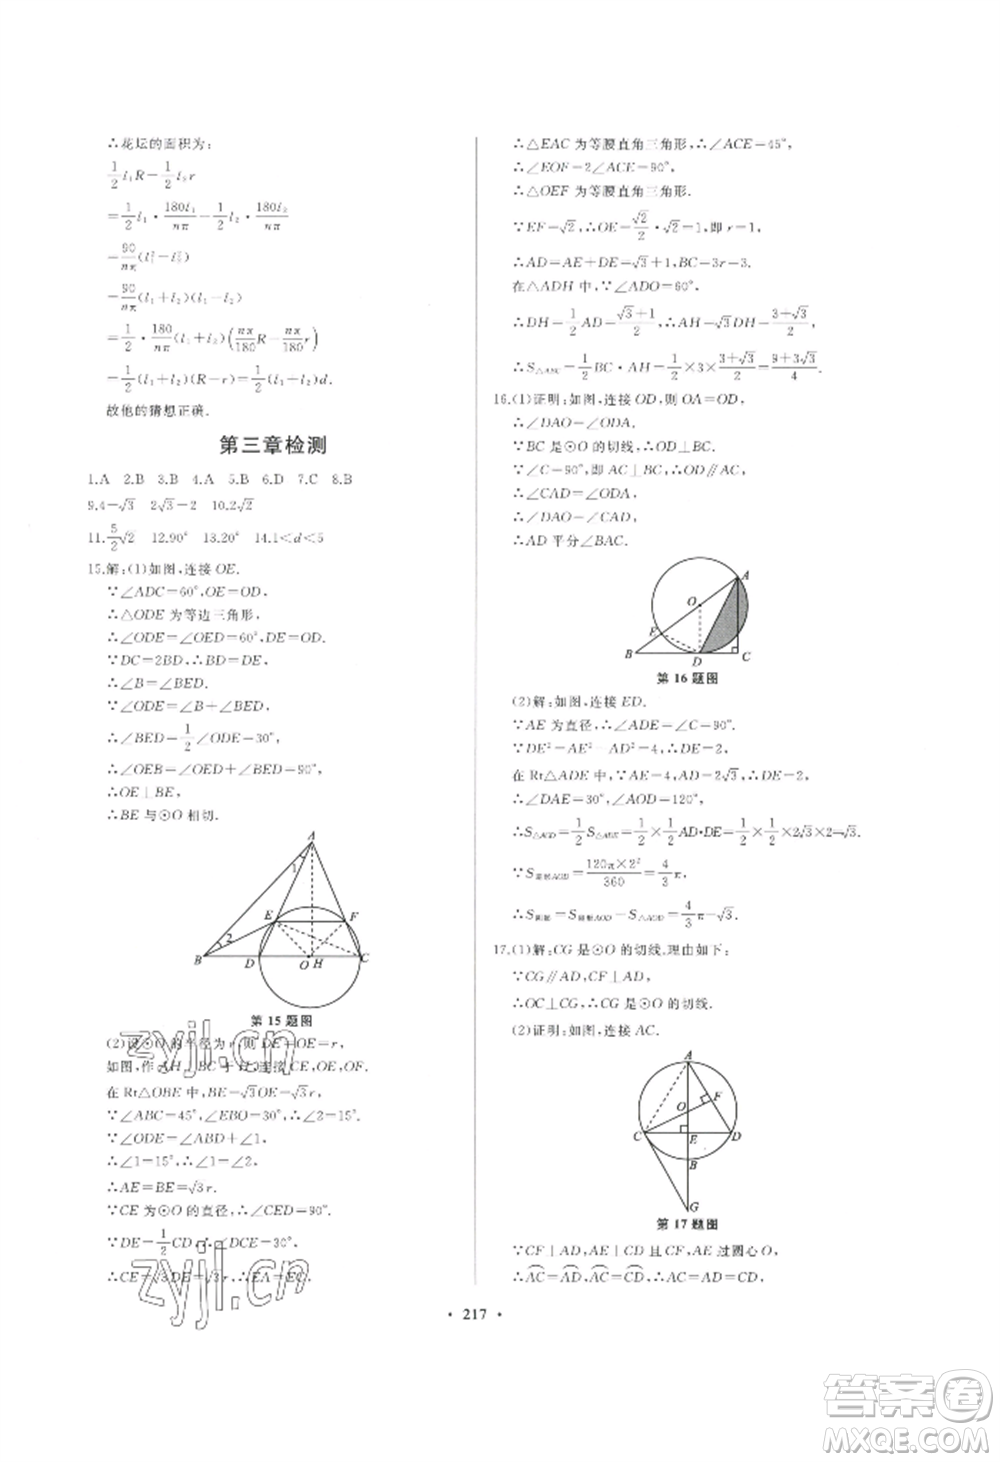 ∴花坛的面积为:
1/2 l₁R－1/2 l₂r
＝1/2 l₁·180l₁/nπ－1/2 l₂·180l₂/nπ
＝90/nπ(l₁²－l₂²)
＝90/nπ(l₁＋l₂)(l₁－l₂)
＝1/2·180/nπ(l₁＋l₂)(nπ/180 R－nπ/180 r)
＝1/2(l₁＋l₂)(R－r)＝1/2(l₁＋l₂)d.
故他的猜想正确.
第三章检测
1.A 2.B 3.B 4.A 5.B 6.D 7.C 8.B
9.4－√3 2√3－2 10.2√2
11.5/2√2 12.90° 13.20° 14.1＜d＜5
15.解:(1)如图,连接OE.
∵∠ADC＝60°,OE＝OD,
∴△ODE 为等边三角形,
∴∠ODE＝∠OED＝60°,DE＝OD.
∵DC＝2BD,∴BD＝OD＝DE,
∴∠B＝∠BED.
∵∠ODE＝∠B＋∠BED,
∴∠BED＝1/2∠ODE＝30°,
∴∠OEB＝∠OED＋∠BED＝90°,
∴OE⊥BE,
∴BE 与⊙O 相切.
A
1
E
F
2
B
D
O
H
C
第 15 题图
(2)设⊙O 的半径为 r,则 DE＝OE＝r,
如图,作 AH⊥BC于H,连接CE,OE,OF.
在 Rt△OBE 中,BE＝√3OE＝√3r.
∵∠ABC＝45°,∠EBO＝30°,∴∠2＝15°.
∵∠ODE＝∠ABD＋∠1,
∴∠1＝15°,∴∠1＝∠2,
∴AE＝BE＝√3r.
∵CE 为⊙O 的直径,∴∠CED＝90°.
∵DE＝1/2CD,∴∠DCE＝30°,
∴CE＝√3DE＝√3r,∴EA＝EC.
∴△EAC 为等腰直角三角形,∴∠ACE＝45°,
∴∠EOF＝2∠ACE＝90°,
∴△OEF 为等腰直角三角形.
∵EF＝√2,∴OE＝√2/2·√2＝1,即 r＝1,
∴AD＝AE＋DE＝√3＋1,BC＝3r＝3.
在△ADH 中,∵∠ADO＝60°,
∴DH＝1/2AD＝(√3＋1)/2,∴AH＝√3DH＝(3＋√3)/2,
∴S△ABC＝1/2BC·AH＝1/2×3×(3＋√3)/2＝(9＋3√3)/4.
16.(1)证明:如图,连接 OD,则 OA＝OD,
∴∠DAO＝∠ODA.
∵BC 是⊙O 的切线,∴OD⊥BC.
∵∠C＝90°,即 AC⊥BC,∴OD∥AC,
∴∠CAD＝∠ODA,
∴∠DAO＝∠CAD,
∴AD 平分∠BAC.
A
O
E
B
D
C
第 16 题图
(2)解:如图,连接 ED.
∵AE 为直径,∴∠ADE＝∠C＝90°.
∵DE²＝AE²－AD²＝4,∴DE＝2,
在 Rt△ADE 中,∵AE＝4,AD＝2√3,DE＝2,
∴∠DAE＝30°,∴∠AOD＝120°,
∴S△AOD＝1/2S△ADE＝1/2×1/2AD·DE＝1/2×1/2×2√3×2＝√3.
∵S扇形AOD＝120π×2²/360＝4/3π,
∴S阴影＝S扇形AOD－S△AOD＝4/3π－√3.
17.(1)解:CG 是⊙O 的切线.理由如下:
∵CG∥AD,CF⊥AD,
∴OC⊥CG,∴CG 是⊙O 的切线.
(2)证明:如图,连接 AC.
A
F
O
C
E
D
B
G
第 17 题图
∵CF⊥AD,AE⊥CD 且 CF,AE 过圆心 O,
∴AC＝AD,AC＝CD,∴AC＝AD＝CD,
• 217 •
zyjl.cn
zyjl.cn
答案圈
MXQE.COM